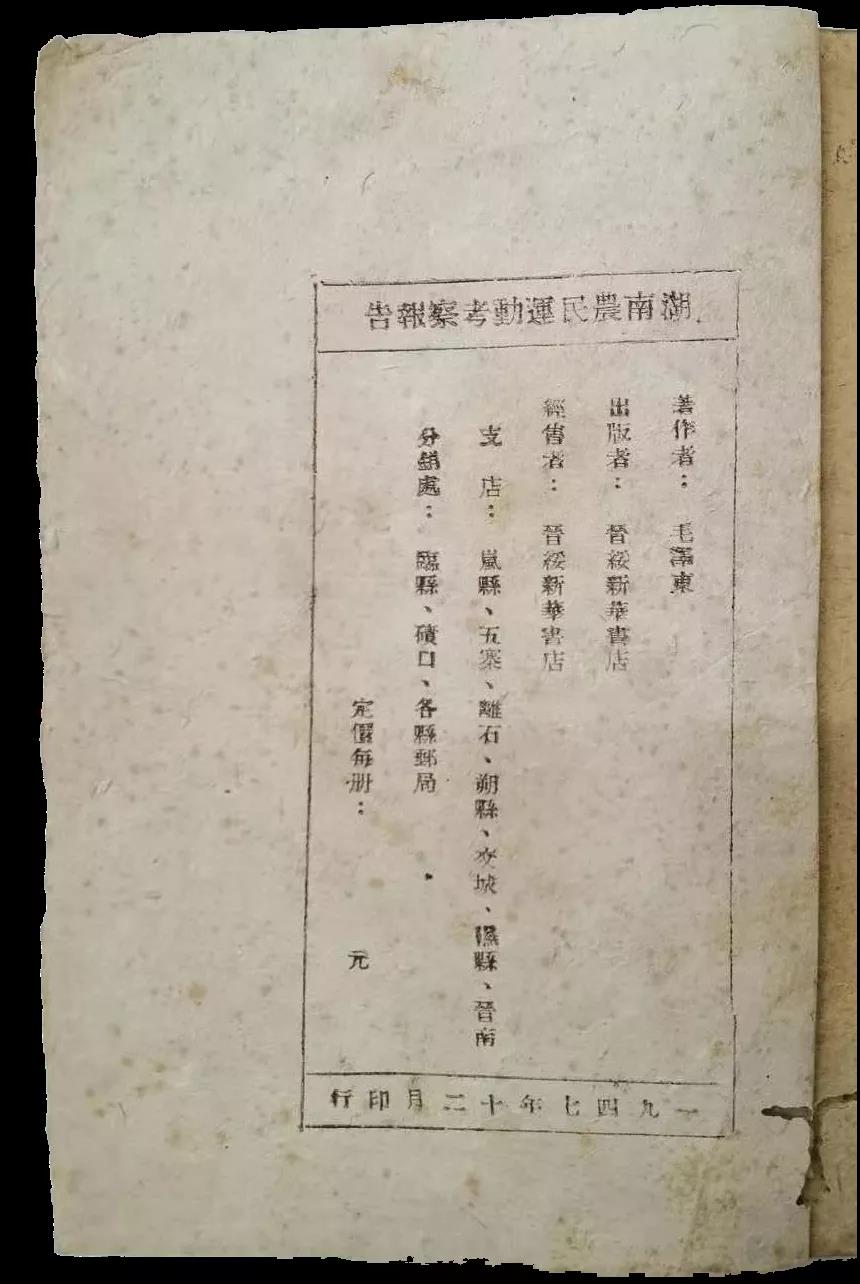 湖南農民運動考察報告
著作者：毛澤東
出版者：晉綏新華書店
經售者：晉綏新華書店
支店：嵐縣、五寨、離石、朔縣、交城、隰縣、晉南
分銷處：臨縣、磧口、各縣郵局
定價每册：元
一九四七年十二月印行